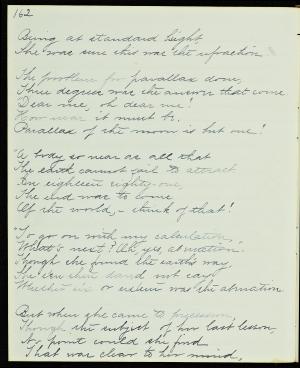 162
Being at standard height
She was sure this was the refraction
The problem for parallax done,
Three degrees was the answer that came
Dear me, oh dear me!
How near it must be.
Parallax of the moon is but one!
"A body so near as all that
The earth cannot fail to attract
In eighteen eighty-one,
The end was to come
Of the world, – think of that!
"To go on with my calculation,
What's next? Oh, yes, aberration.
Though she found the earth's way,
She
not say
Whether sin or cosine was the aberration
But when she came to precession,
Though the subject of her last lesson,
No point could she find
That was clear to her mind,